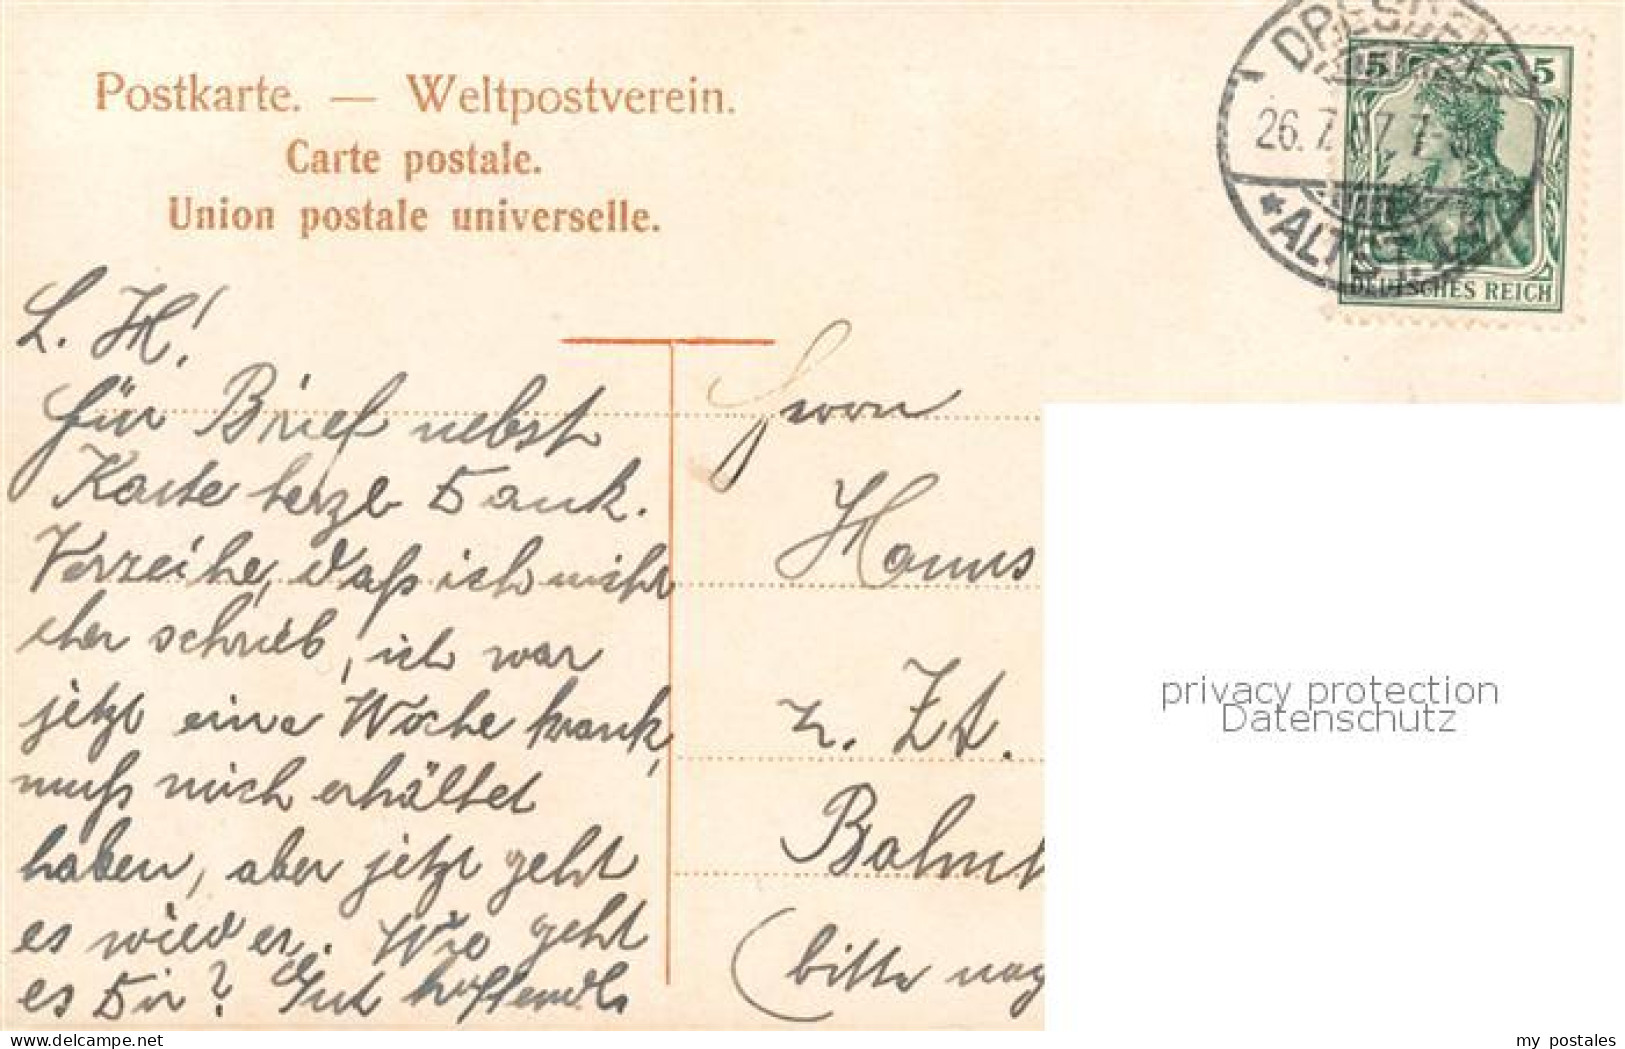 Postkarte. — Weltpostverein.
Carte postale.
Union postale universelle.
DRESDEN
26. 7. 07. 7-
* ALTST.
5 5
DEUTSCHES REICH
L. H!
für Brief nebst
Karte herzl Dank.
Verzeihe, daß ich nicht
eher schrieb, ich war
jetzt eine Woche krank,
muß mich erhältet
haben, aber jetzt geht
es wieder. Wie geht
es Dir? Gut hoffendl
Herrn
Hanns
z. Zt.
Bahnh
(bitte nag
privacy protection
Datenschutz
www.delcampe.net
my_postales